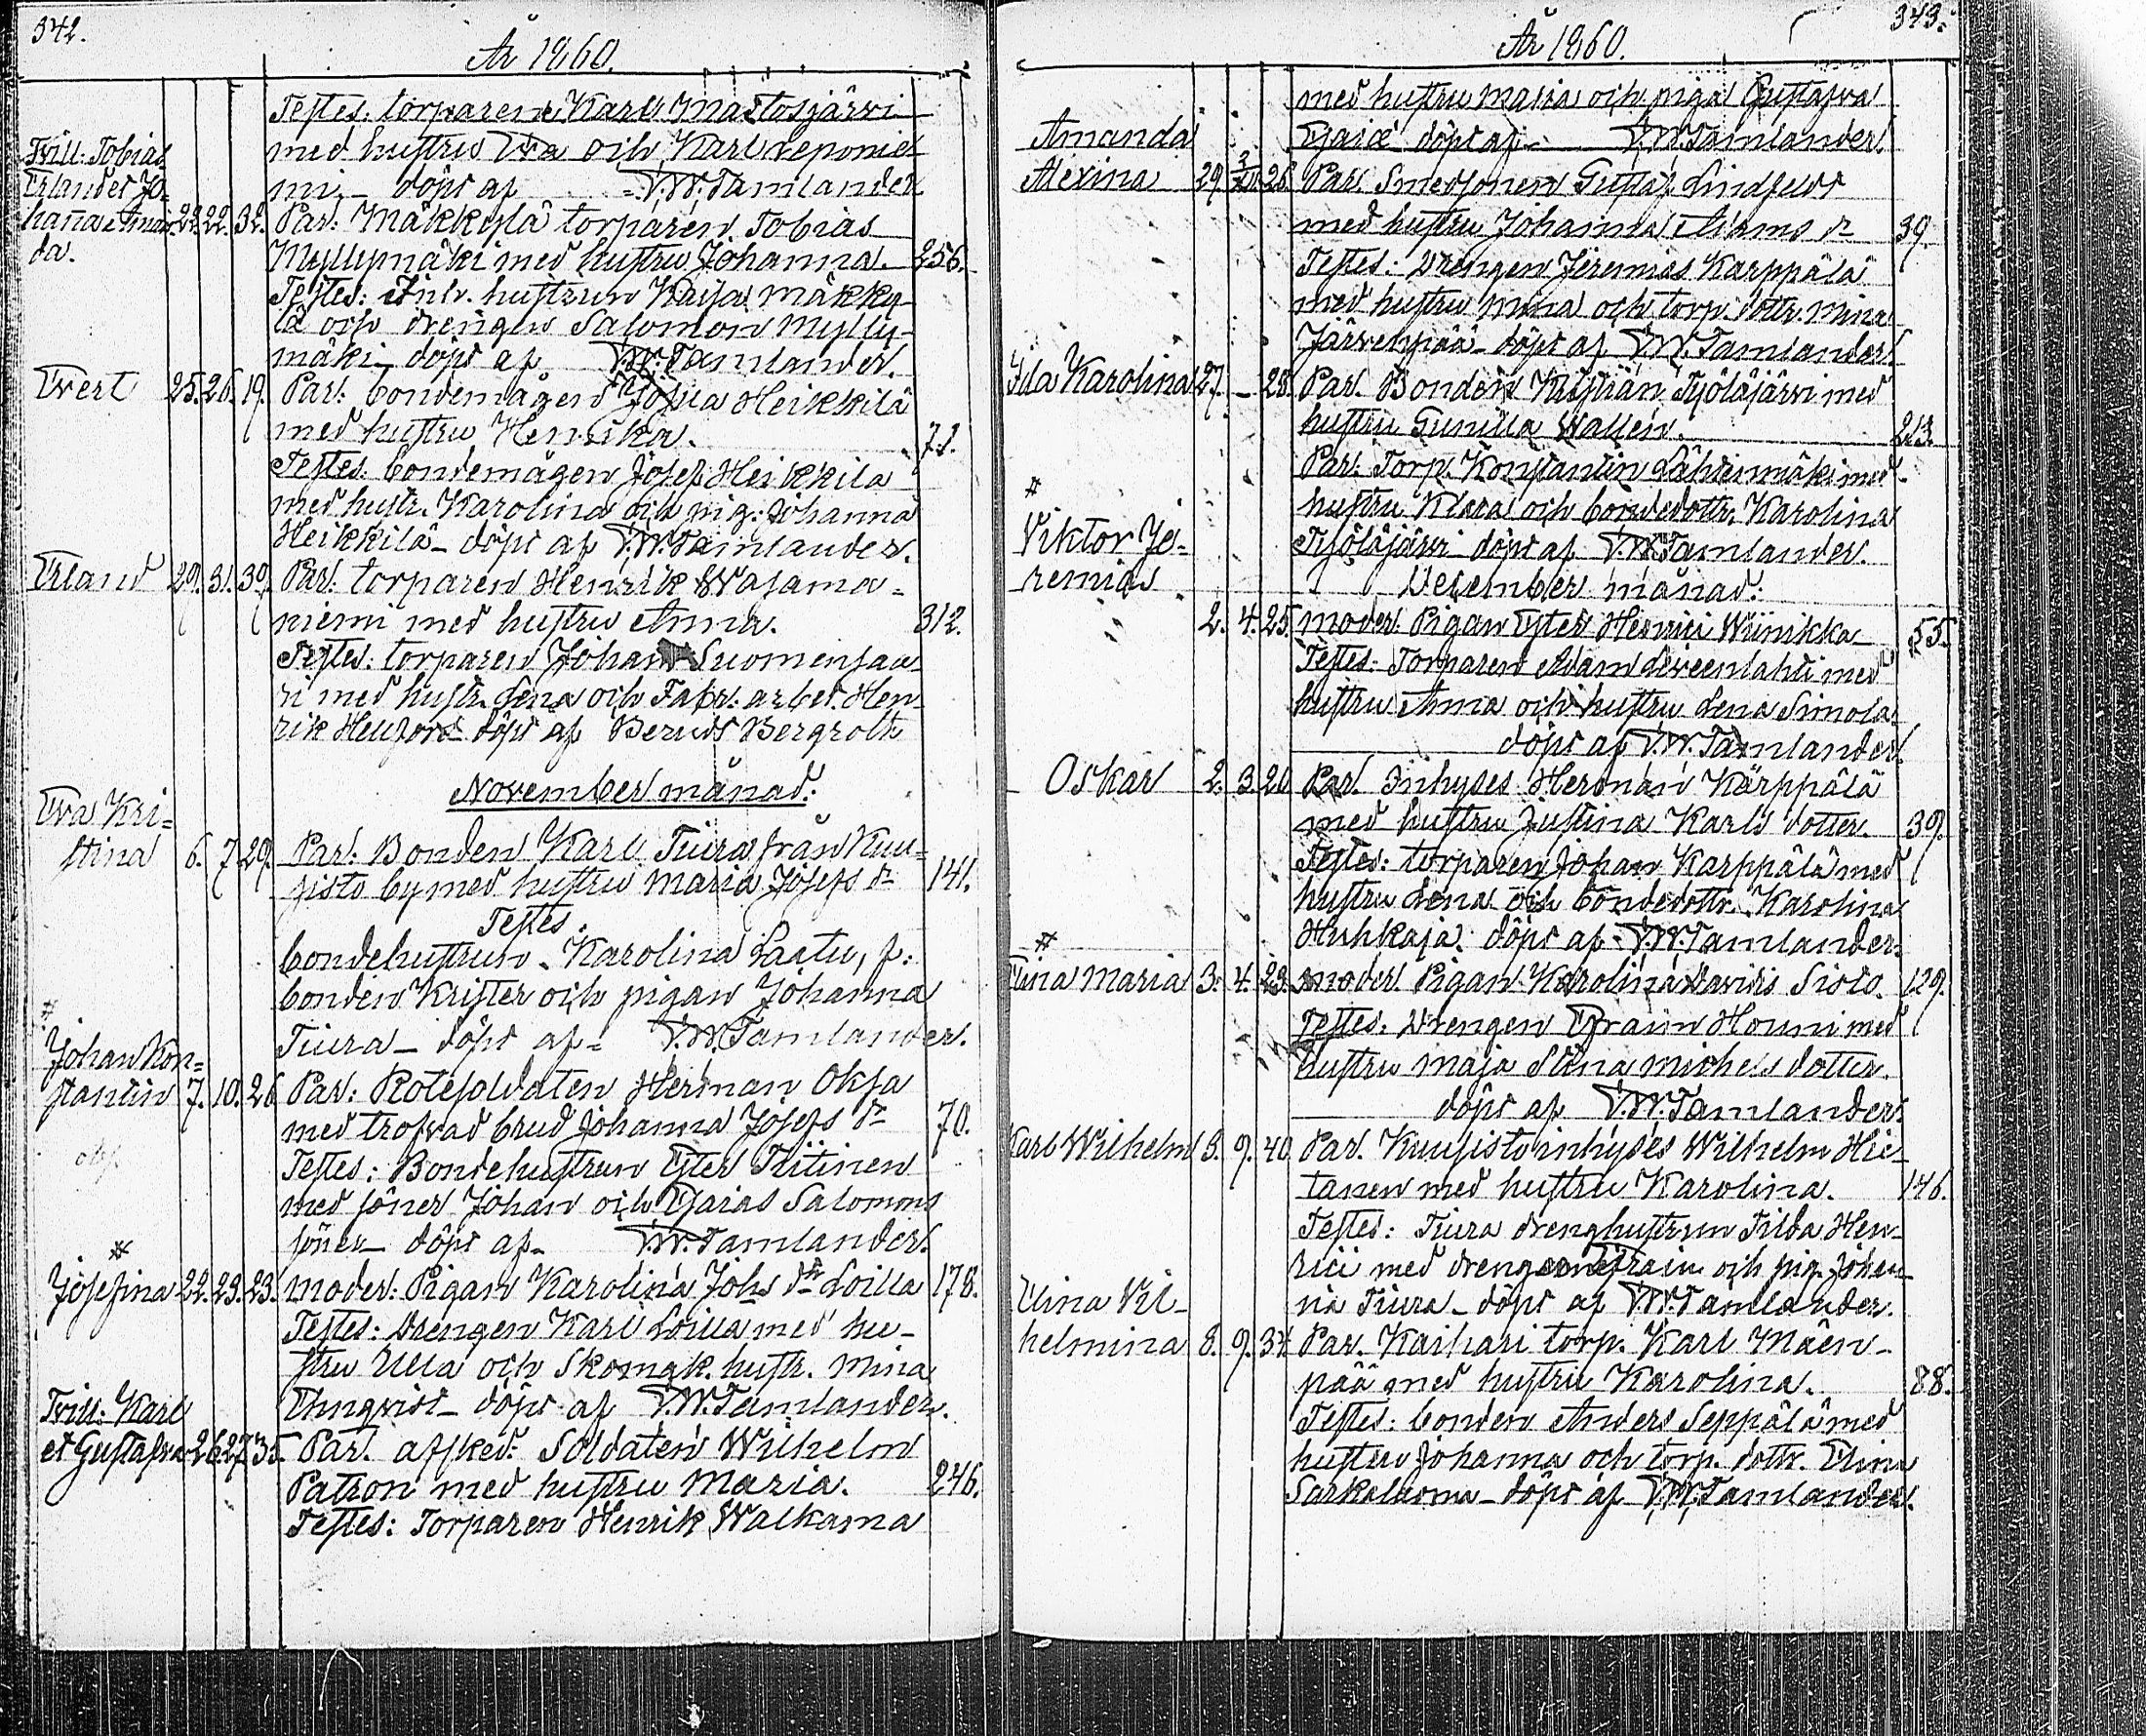 342.
År 1860.
Testes: torparen Karl Mastosjärvi
med hustru Eva och Karl Reponie-
mi, döpt af F.W. Tamlander
Tvill: Tobias
Erlander Jo-
hanna Aman-
da.
22. 22. 32. Par: Mäkkylä torparen Tobias
Myllymäki med hustru Johanna. 256.
Testes: Inh. hustrun Kaisa Mäkky-
lä och drengen Salomon Mylly-
mäki döpt af F.W. Tamlander.
Evert 25. 26. 19. Par: bondemågen Josua Heikkilä
med hustru Henrika. 71.
Testes: bondemågen Josef Heikkilä
med hustr. Karolina och pig: Johanna
Heikkilä - döpt af F.W. Tamlander.
Erland 29. 31. 39. Par: torparen Henrik Wasama-
niemi med hustru Anna. 312.
Testes: torparen Johan Suomensaa-
ri med hustr. Lena och Fabr: arbet. Hen-
rik Helfors döpt af Bernds Bergroth
November månad:
Eva Kri-
stina 6. 7. 29. Par: Bonden Karl Tiura från Kuu-
sisto by med hustru Maria Josefs dr 141.
Testes.
bondehustrun Karolina Laatu, f:
bonden Krister och pigan Johanna
Tiura - döpt af F.W. Tamlander.
#
Johan Kon-
stantin 7. 10. 26 Par: Rotesoldaten Herman Oksa
med trofvad brud Johanna Josefs dr 70.
Testes: Bondehustrun Ester Tiitinen
med söner Johan och Esaias Salomons
söner - döpt af F.W. Tamlander.
#
Josefina 22. 23. 23. moder: Pigan Karolina Johs dr Loilla 178.
Testes: Drengen Karl Loilla med hu-
stru Ulla och Skomak. hustr. Mina
Elmqvist - döpt af F.W. Tamlander.
Tvill: Karl
et Gustafva 26. 27. 35. Par. afsked: Soldaten Wilhelm
Patron med hustru Maria. 246.
Testes: Torparen Henrik Walkama
343.
År 1860.
med hustru Maria och piga Gustafva
Esaiæ döpt af F.W. Tamlander.
Amanda
Alexina 29. 26. Par. Smedsonen Gustaf Lindfelt
med hustru Johanna Adams dr 39.
Testes: Drengen Jeremias Karppälä
med hustru Mina och torp. dottr. Mina
Järvenpää - döpt af F.W. Tamlander.
Ida Karolina 27. - 28. Par. Bonden Kristian Syöläjärvi med
hustru Gunilla Wallen. 213.
Par. Torp. Konstantin Lähteenmäki med
hustru Klara och bondedottr. Karolina
Syöläjärvi döpt af F.W. Tamlander.
December månad:
#
Viktor Je-
remias
2. 4. 25. moder: Pigan Ester Henrici Wiinikka 55.
Testes: Torparen Adam Liveenlahti med
hustru Anna och hustru Lena Simola
döpt af F.W. Tamlander.
Oskar 2. 3. 20. Par. Inhyses Herman Kärppälä
med hustru Justina Karls dotter. 39.
Testes: torparen Johan Karppälä med
hustru Lena och bondedottr. Karolina
Huhkaja. döpt af F.W. Tamlander.
#
Elina Maria 3. 4. 23. moder Pigan Karolina Davids Sisto. 129.
Testes: Drengen Efraim Honni med
hustru Maja Stina Michels dotter.
döpt af F.W. Tamlander.
Karl Wilhelm 8. 9. 40. Par. Kuusisto inhyses Wilhelm Hie-
tanen med hustru Karolina. 146.
Testes: Tiura drenghustrun Tilda Hen-
rici med drengen Efraim och pig. Johan-
na Tiura - döpt af F.W. Tamlander.
Elina Vil-
helmina 8. 9. 34. Par. Kaihari torp. Karl Mäen-
pää med hustru Karolina. 88.
Testes: bonden Anders Seppälä med
hustru Johanna och torp. dottr. Elina
Sarkaluoma - döpt af F.W. Tamlander.